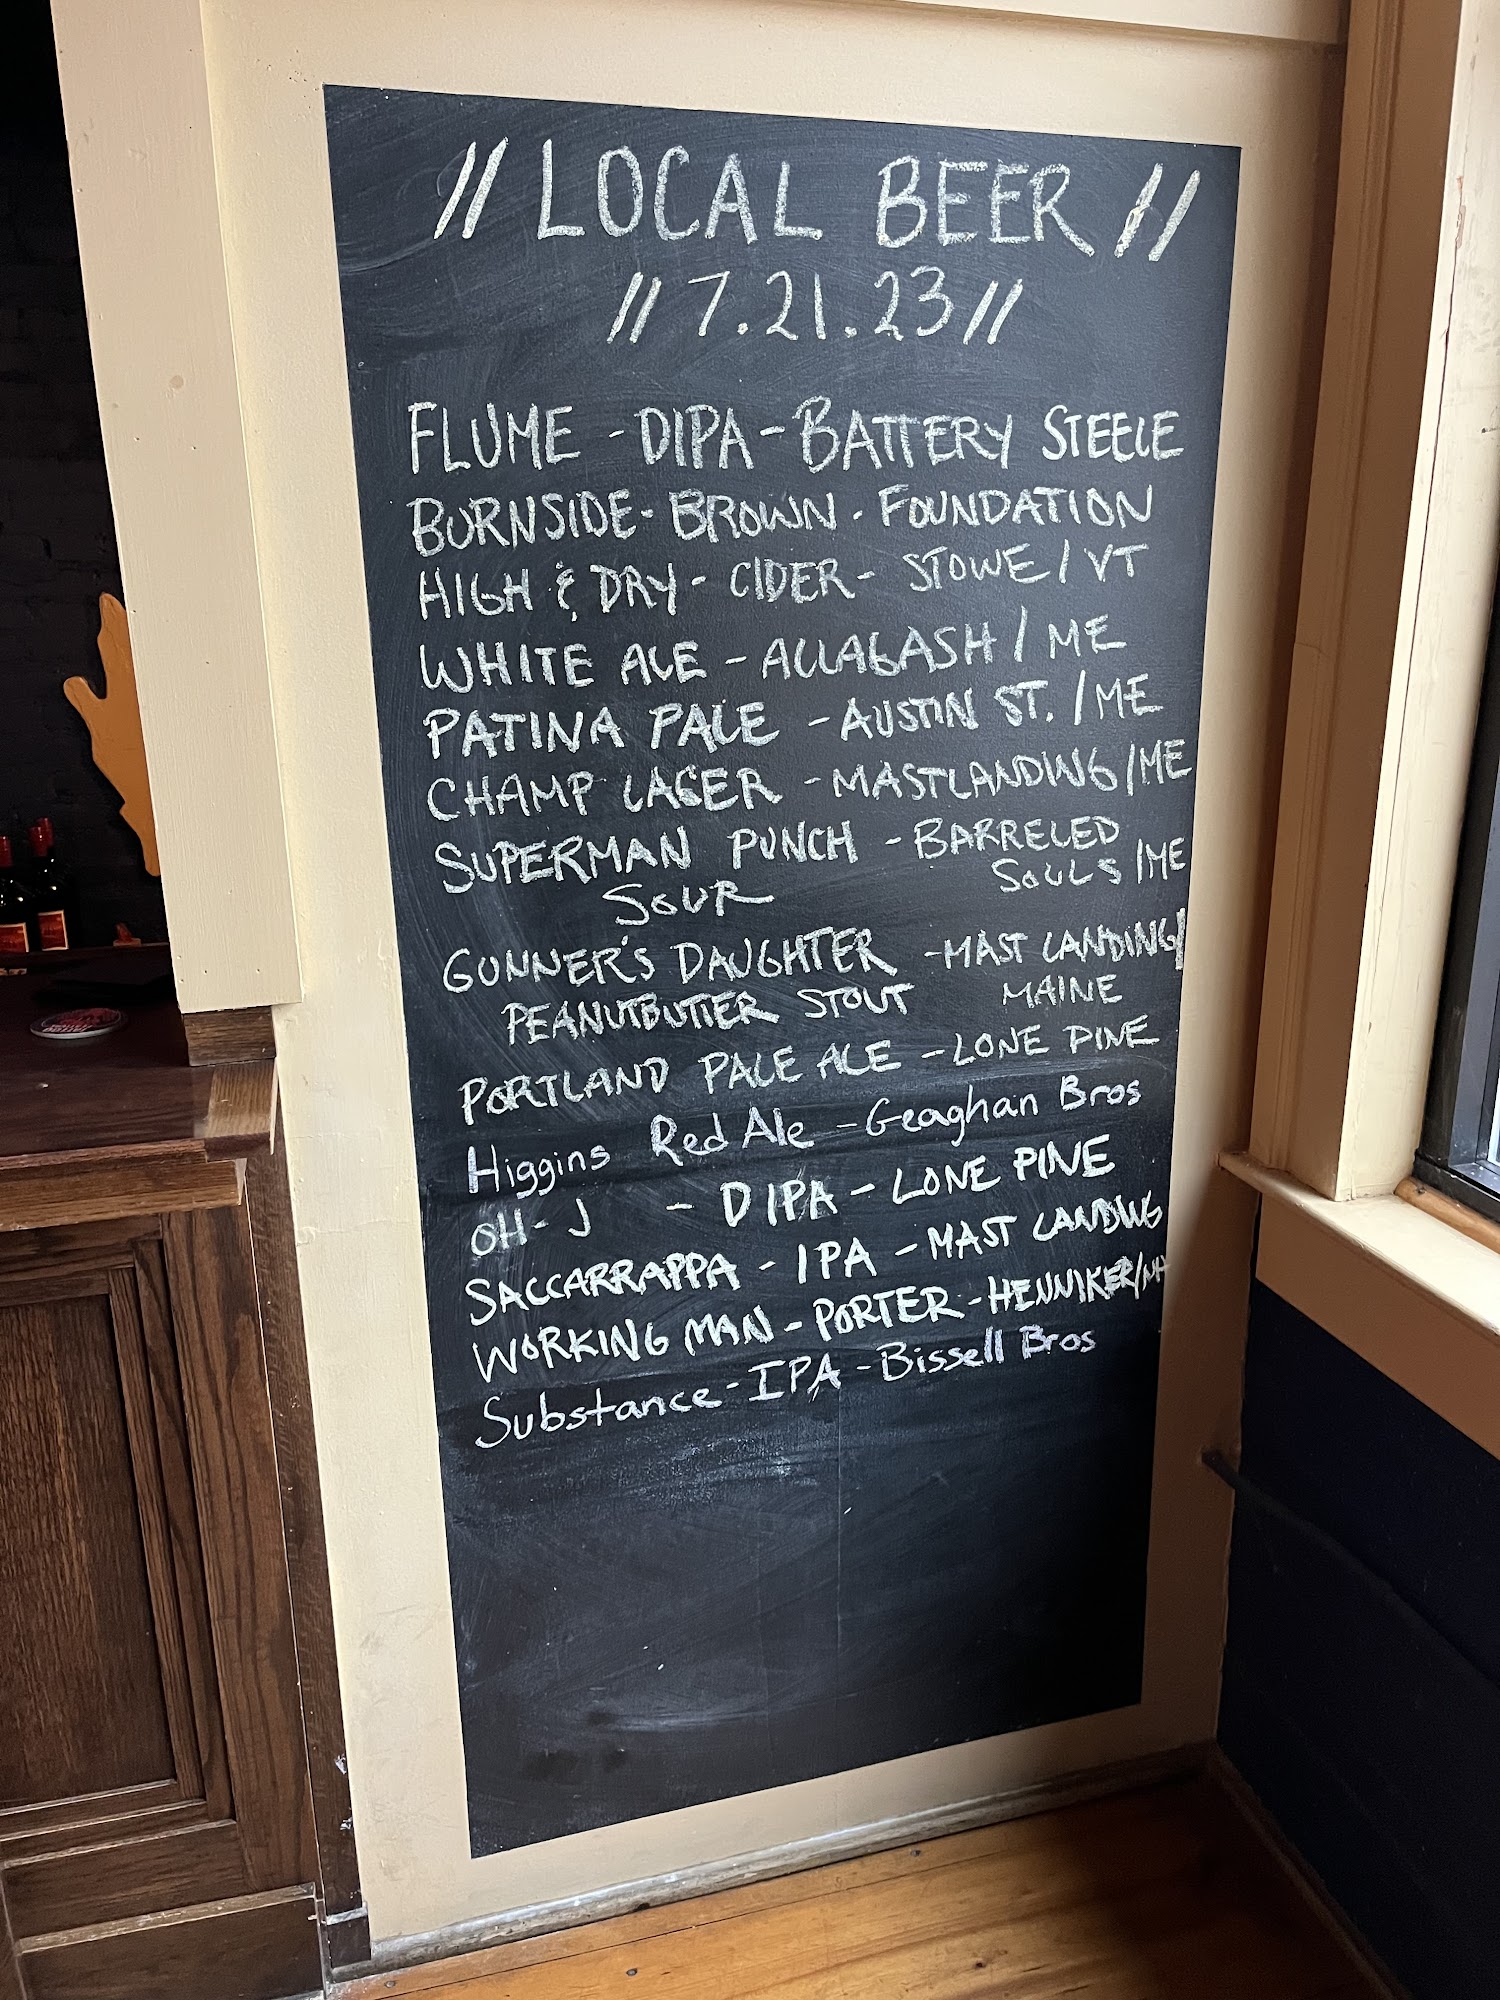 // LOCAL BEER //
// 7.21.23 //
FLUME - DIPA - BATTERY STEELE
BURNSIDE - BROWN - FOUNDATION
HIGH & DRY - CIDER - STOWE / VT
WHITE ALE - ALLAGASH / ME
PATINA PALE - AUSTIN ST. / ME
CHAMP LAGER - MASTLANDING / ME
SUPERMAN PUNCH - BARRELED
SOUR SOULS / ME
GUNNER'S DAUGHTER - MAST LANDING /
PEANUTBUTTER STOUT MAINE
PORTLAND PALE ALE - LONE PINE
Higgins Red Ale - Geaghan Bros
OH-J - DIPA - LONE PINE
SACCARRAPPA - IPA - MAST LANDING
WORKING MAN - PORTER - HENNIKER/NH
Substance - IPA - Bissell Bros